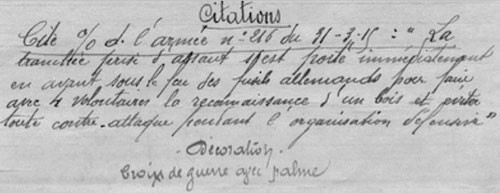 Citations
Cité % d. l'armée n° 216 du 31-3-15 : " La
tranchée prise d'assaut s'est porté immédiatement
en avant sous le feu des fusils allemands pour faire
avec 4 volontaires la reconnaissance d'un bois et
toute contre-attaque pendant l'organisation défensive "
Décoration
Croix de guerre avec palme